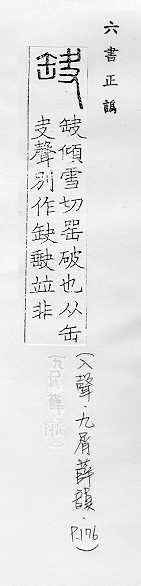 六書正譌
傾雪切器破也从缶
聲別作缺竝非
(入聲·九屑薛韻·P.176)